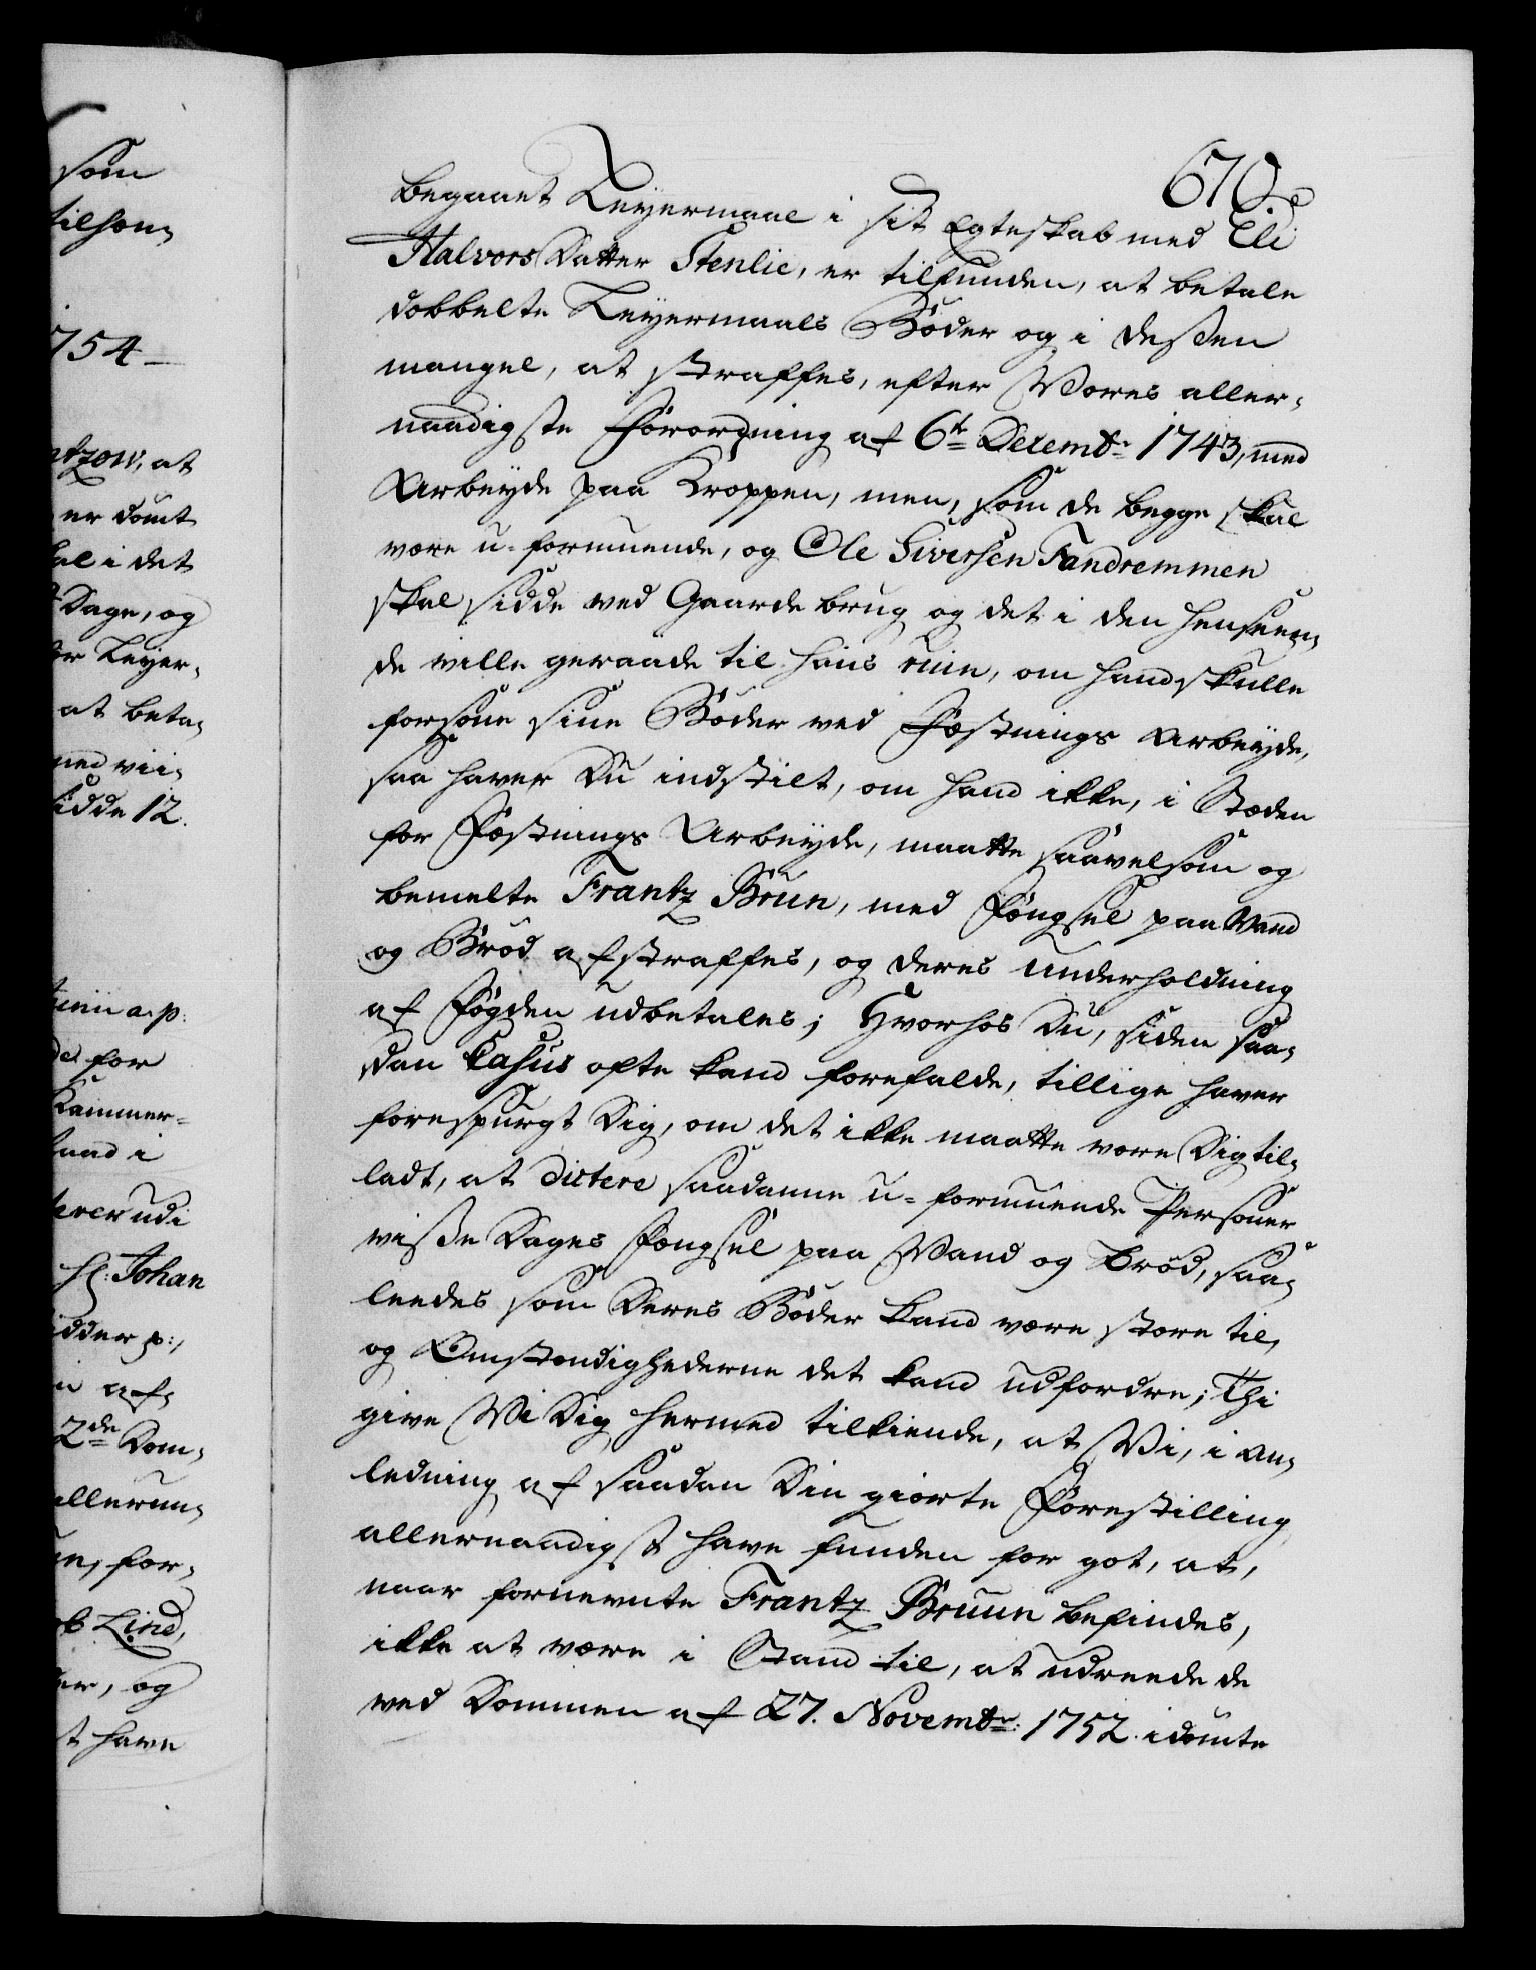 som
tilhøn¬
754
ntzow, at
er dømt
hal i det
Dage, og
Leyer¬
at beta¬
vii¬
sidde 12.
Junii a. p.
for
Kammer¬
haand i
udi
Hl: Johan
p:,
af¬
2de Dom,
allerun¬
for¬
Lind,
og
have
670
begaaet Leyermaal i sit Egteskab med Eli
Halvors Datter Stenlie, er tilfunden, at betale
dobbelte Leyermaals Bøder og i deßen
mangel, at straffes, efter Vores aller¬
naadigste Forordning af 6te Decembr 1743, med
Arbeyde paa Kroppen, men, som de begge skal
være u-formuende, og Ole Siversen Tandremmen
skal sidde ved Gaarde brug og det i den henseen¬
de ville geraade til hans ruin, om hand skulle
forsone sine Bøder ved Fæstnings Arbeyde,
saa haver Du indstilt, om hand ikke, i Stæden
for Fæstnings Arbeyde, maatte saavelsom og
bemelte Frantz Brun, med Fængsel paa Vand
og Brød afstraffes, og deres underholdning
af Fogden udbetales; Hvorhos Du, siden saa¬
dan Casus ofte kand forefalde, tillige haver
forespurgt Dig, om det ikke maatte være Dig til¬
ladt, at dictere saadanne u-formuende Persohner
viße Dages Fængsel paa Vand og Brød, saa¬
leedes som Deres Bøder kand være store til,
og Omstændighederne det kand udfordre; Thi
give Vi Dig hermed tilkiende, at Vi, i an¬
ledning af saadan Din giorte Forestilling
allernaadigst have funden for got, at,
naar fornevnte Frantz Bruun befindes,
ikke at være i Stand til, at udreede de
ved Dommen af 27. Novembr: 1752. idømte